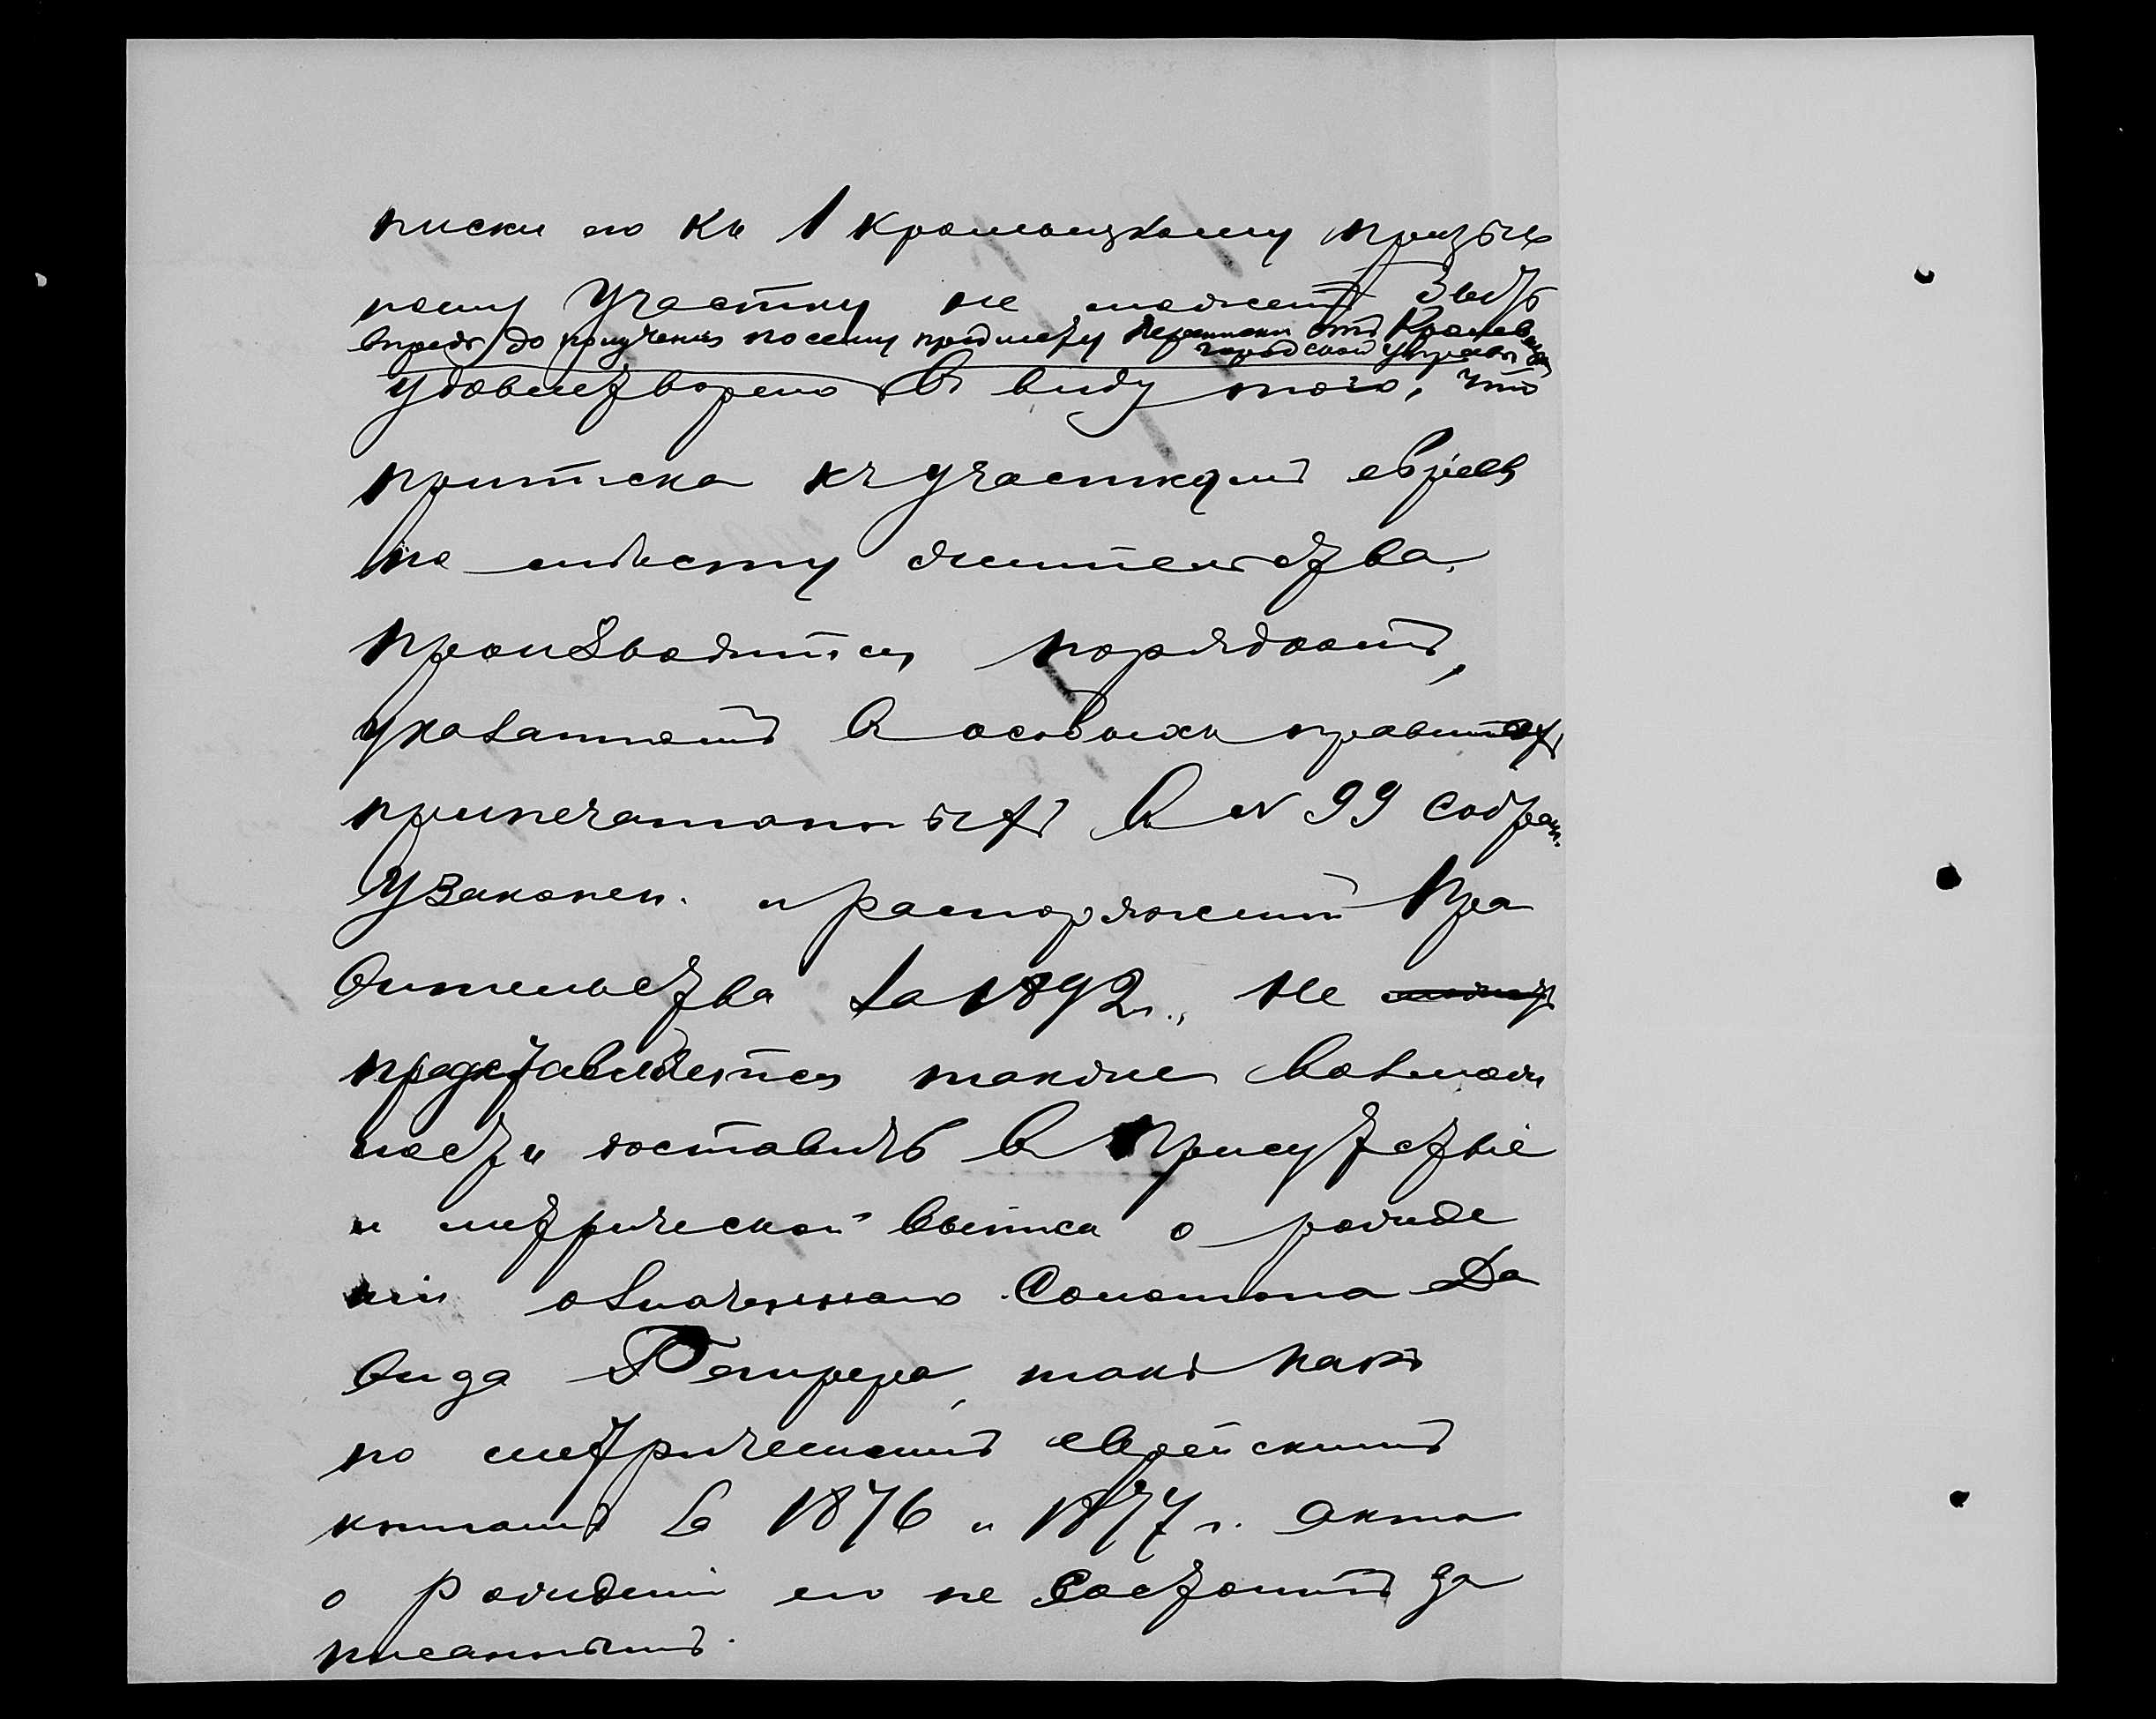 писки его къ 1 призыв
ному участку не можетъ быть
впредь до полученія по сему предмету переписки отъ
городской управы
удовлетворено въ виду того, что
приписка къ участкамъ евреевъ
по мѣсту жительства,
производится порядкомъ,
указаннымъ въ особыхъ правилахъ
припечатанныхъ въ № 99 Собран.
узаконен. и распоряженій Пра
вительства за 1892 г., не
представляется также возмож
ности доставить въ Присутствіе
и метрической выписи о рожде
ніи означеннаго Соломона Да
вида так какъ
по метрическимъ еврейскимъ
книгамъ за 1876 и 1877 г. акта
о рожденіи его не состоитъ за
писаннымъ.